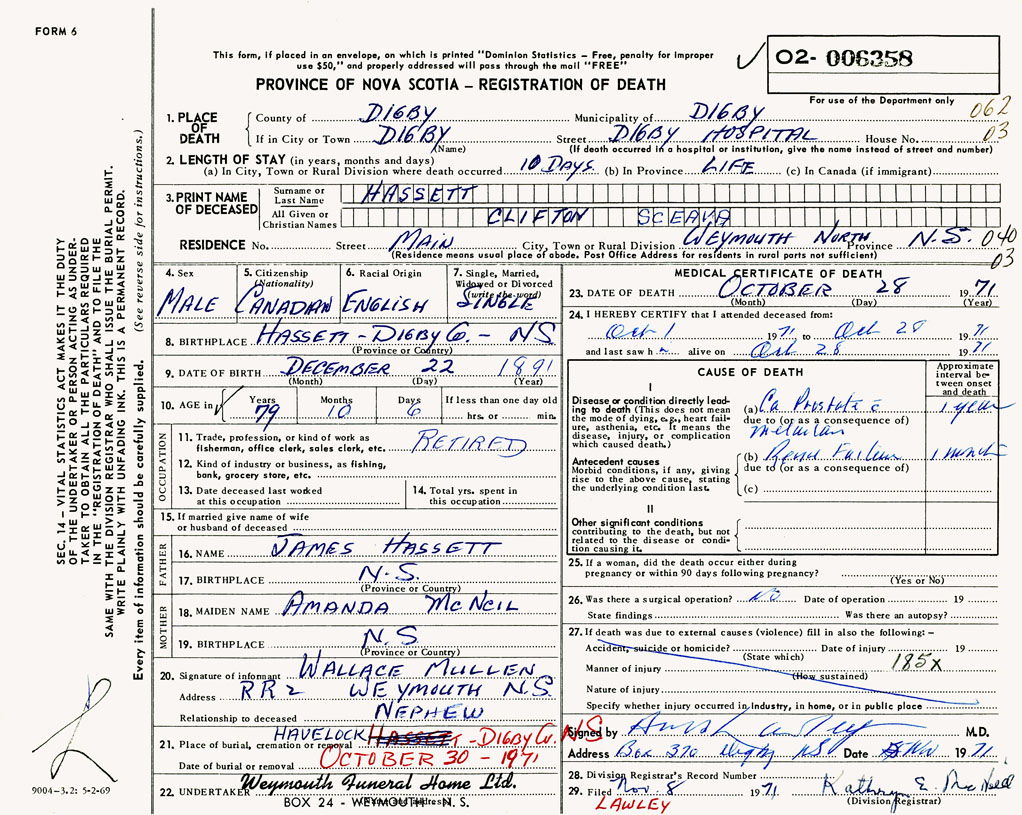 FORM 6
This form, if placed in an envelope, on which is printed "Dominion Statistics – Free, penalty for improper
use $50," and properly addressed will pass through the mail "FREE"
O2- 006358
PROVINCE OF NOVA SCOTIA – REGISTRATION OF DEATH
For use of the Department only
1. PLACE OF DEATH
County of DIGBY Municipality of DIGBY 062
If in City or Town DIGBY Street DIGBY HOSPITAL House No. 03
(Name) (If death occurred in a hospital or institution, give the name instead of street and number)
2. LENGTH OF STAY (in years, months and days)
(a) In City, Town or Rural Division where death occurred 10 DAYS. (b) In Province LIFE (c) In Canada (if immigrant)
3. PRINT NAME OF DECEASED
Surname or Last Name HASSETT
All Given or Christian Names CLIFTON SCEAVA
RESIDENCE No. Street MAIN City, Town or Rural Division WEYMOUTH NORTH Province N.S. 040
(Residence means usual place of abode. Post Office Address for residents in rural parts not sufficient) 03
4. Sex
MALE
5. Citizenship
(Nationality)
CANADIAN
6. Racial Origin
ENGLISH
7. Single, Married,
Widowed or Divorced
(write the word)
SINGLE
8. BIRTHPLACE HASSETT - DIGBY Co. - NS
(Province or Country)
9. DATE OF BIRTH DECEMBER 22 1891
(Month) (Day) (Year)
10. AGE in Years Months Days If less than one day old
79 10 6 hrs. or min.
OCCUPATION
11. Trade, profession, or kind of work as
fisherman, office clerk, sales clerk, etc. RETIRED
12. Kind of industry or business, as fishing,
bank, grocery store, etc.
13. Date deceased last worked
at this occupation
14. Total yrs. spent in
this occupation
15. If married give name of wife
or husband of deceased
FATHER
16. NAME JAMES HASSETT
17. BIRTHPLACE N.S.
(Province or Country)
MOTHER
18. MAIDEN NAME AMANDA McNEIL
19. BIRTHPLACE N.S.
(Province or Country)
20. Signature of informant WALLACE MULLEN
Address RR 2 WEYMOUTH N.S.
Relationship to deceased NEPHEW
21. Place of burial, cremation or removal HAVELOCK HASSETT - DIGBY Co. NS
Date of burial or removal OCTOBER 30 - 1971
22. UNDERTAKER Weymouth Funeral Home Ltd.
(Name and address)
BOX 24 - WEYMOUTH N.S.
MEDICAL CERTIFICATE OF DEATH
23. DATE OF DEATH OCTOBER 28 1971
(Month) (Day) (Year)
24. I HEREBY CERTIFY that I attended deceased from:
Oct 1 1971 to Oct 28 1971
and last saw h alive on Oct 28 1971
CAUSE OF DEATH
Approximate
interval be-
tween onset
and death
I
Disease or condition directly lead-
ing to death (This does not mean
the mode of dying, e.g., heart fail-
ure, asthenia, etc. It means the
disease, injury, or complication
which caused death.)
(a) Ca Prostate c 1 year
due to (or as a consequence of)
Antecedent causes
Morbid conditions, if any, giving
rise to the above cause, stating
the underlying condition last.
(b) Renal Failure 1 month
due to (or as a consequence of)
(c)
II
Other significant conditions
contributing to the death, but not
related to the disease or condi-
tion causing it.
25. If a woman, did the death occur either during
pregnancy or within 90 days following pregnancy?
(Yes or No)
26. Was there a surgical operation? NO Date of operation 19
State findings Was there an autopsy?
27. If death was due to external causes (violence) fill in also the following: –
Accident, suicide or homicide? Date of injury 19
(State which)
Manner of injury 185X
(How sustained)
Nature of injury
Specify whether injury occurred in industry, in home, or in public place
Signed by M.D.
Address Box 370 Digby NS Date Nov 1971
28. Division Registrar's Record Number
29. Filed Nov. 8 1971 Kathryn E.
(Division Registrar)
LAWLEY
SEC. 14 – VITAL STATISTICS ACT MAKES IT THE DUTY
OF THE UNDERTAKER OR PERSON ACTING AS UNDER-
TAKER TO OBTAIN ALL THE PARTICULARS REQUIRED
IN THE "REGISTRATION OF DEATH" AND TO FILE THE
SAME WITH THE DIVISION REGISTRAR WHO SHALL ISSUE THE BURIAL PERMIT.
WRITE PLAINLY WITH UNFADING INK. THIS IS A PERMANENT RECORD.
Every item of information should be carefully supplied. (See reverse side for instructions.)
9004-3.2: 5-2-69